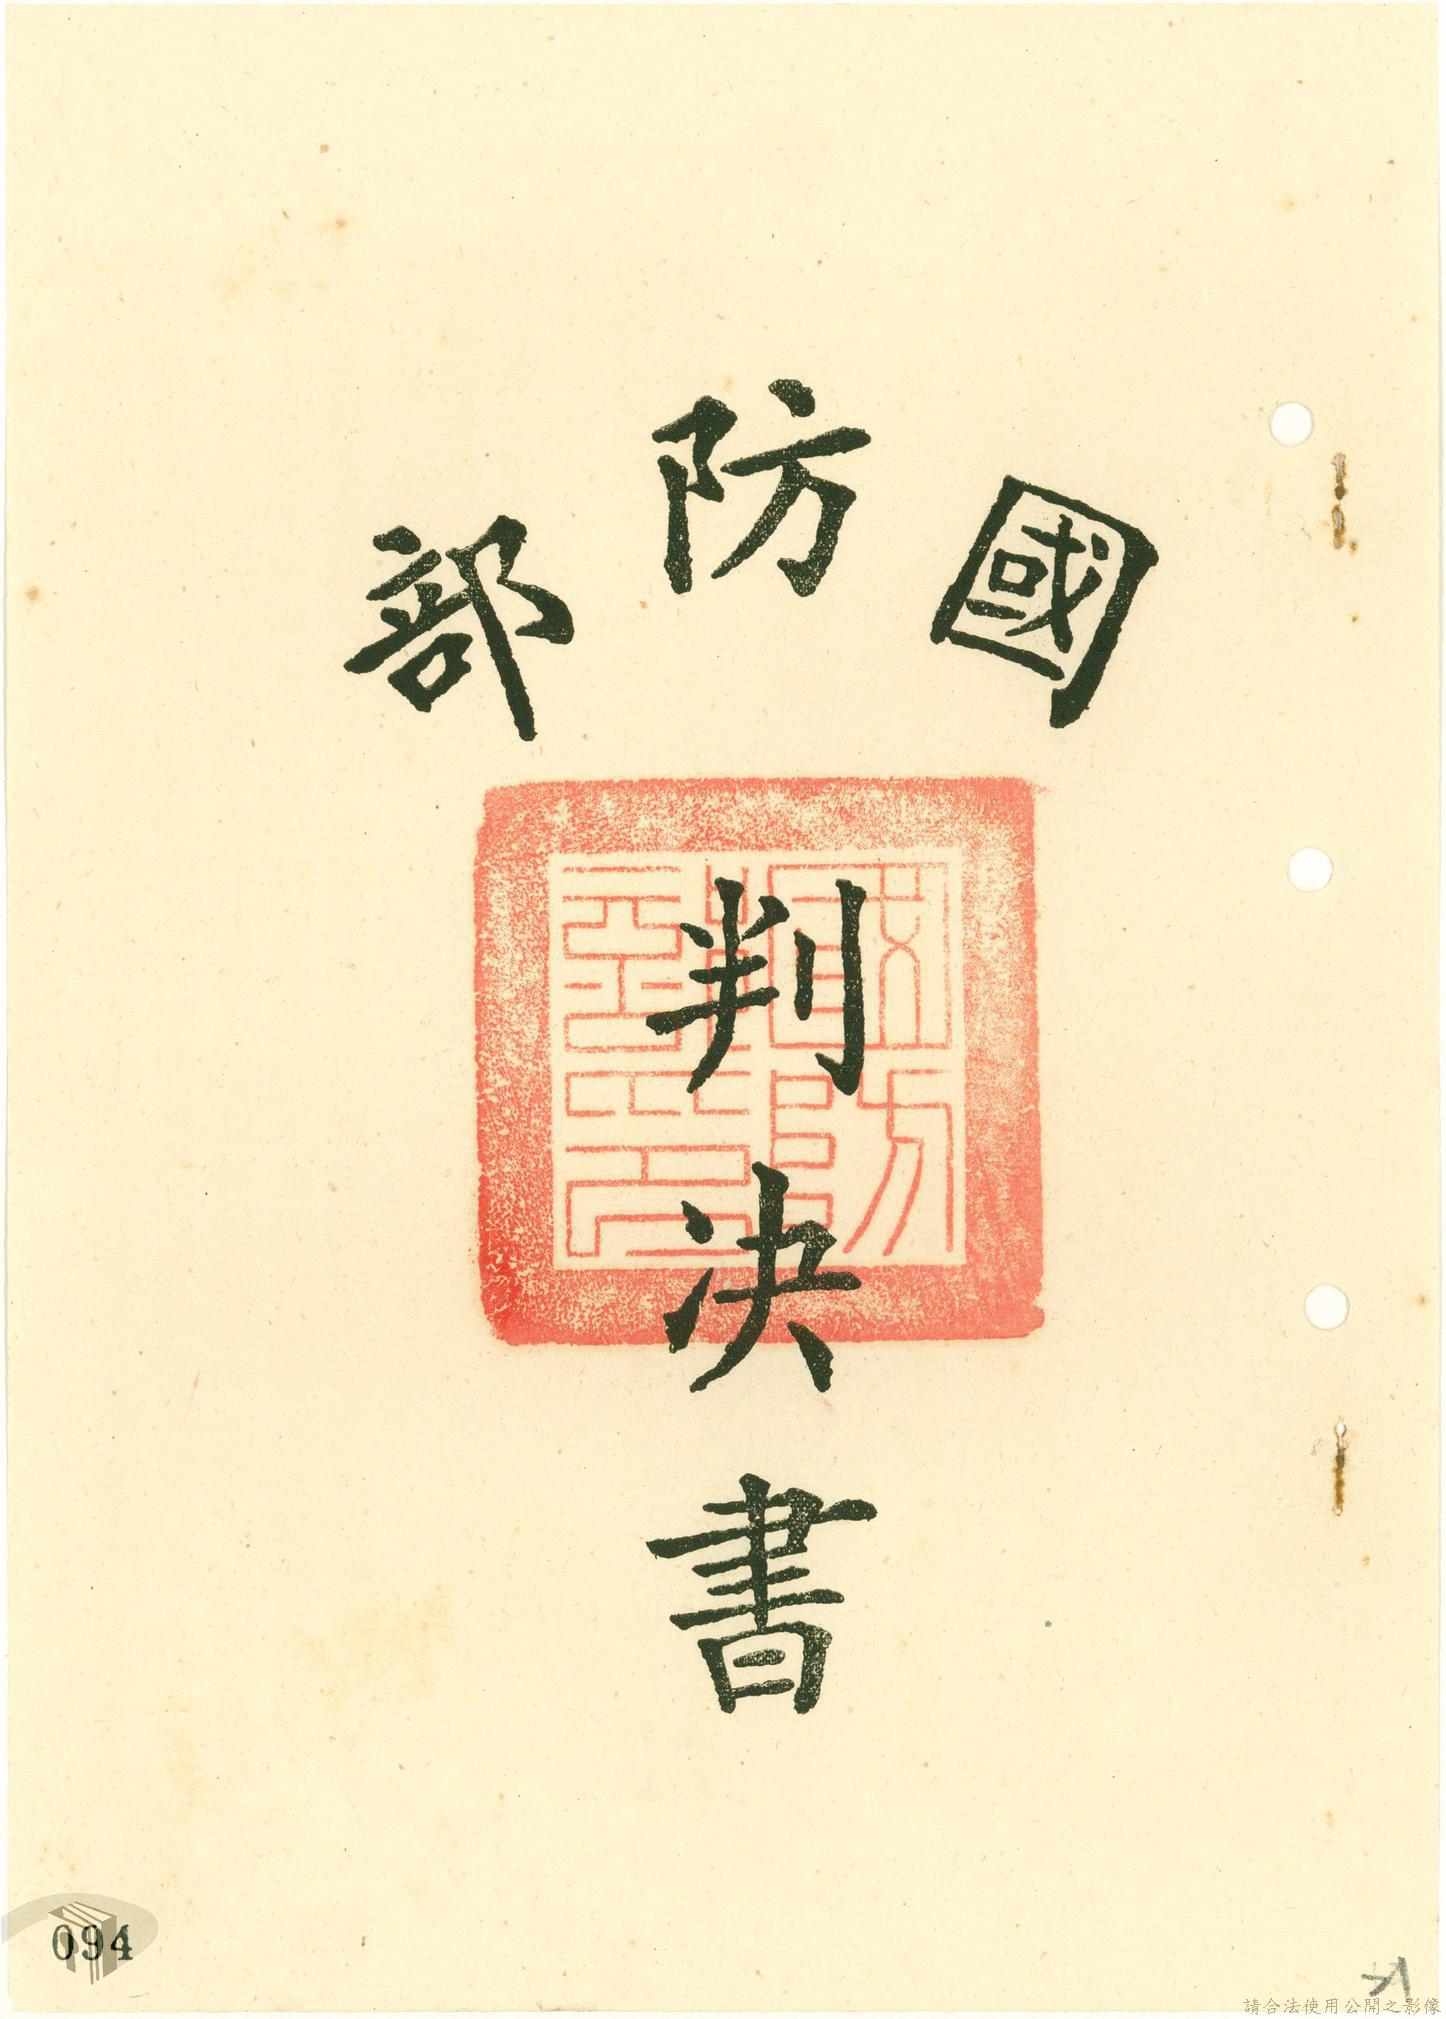 國防部
判決書
國防部印
094
請合法使用公開之影像